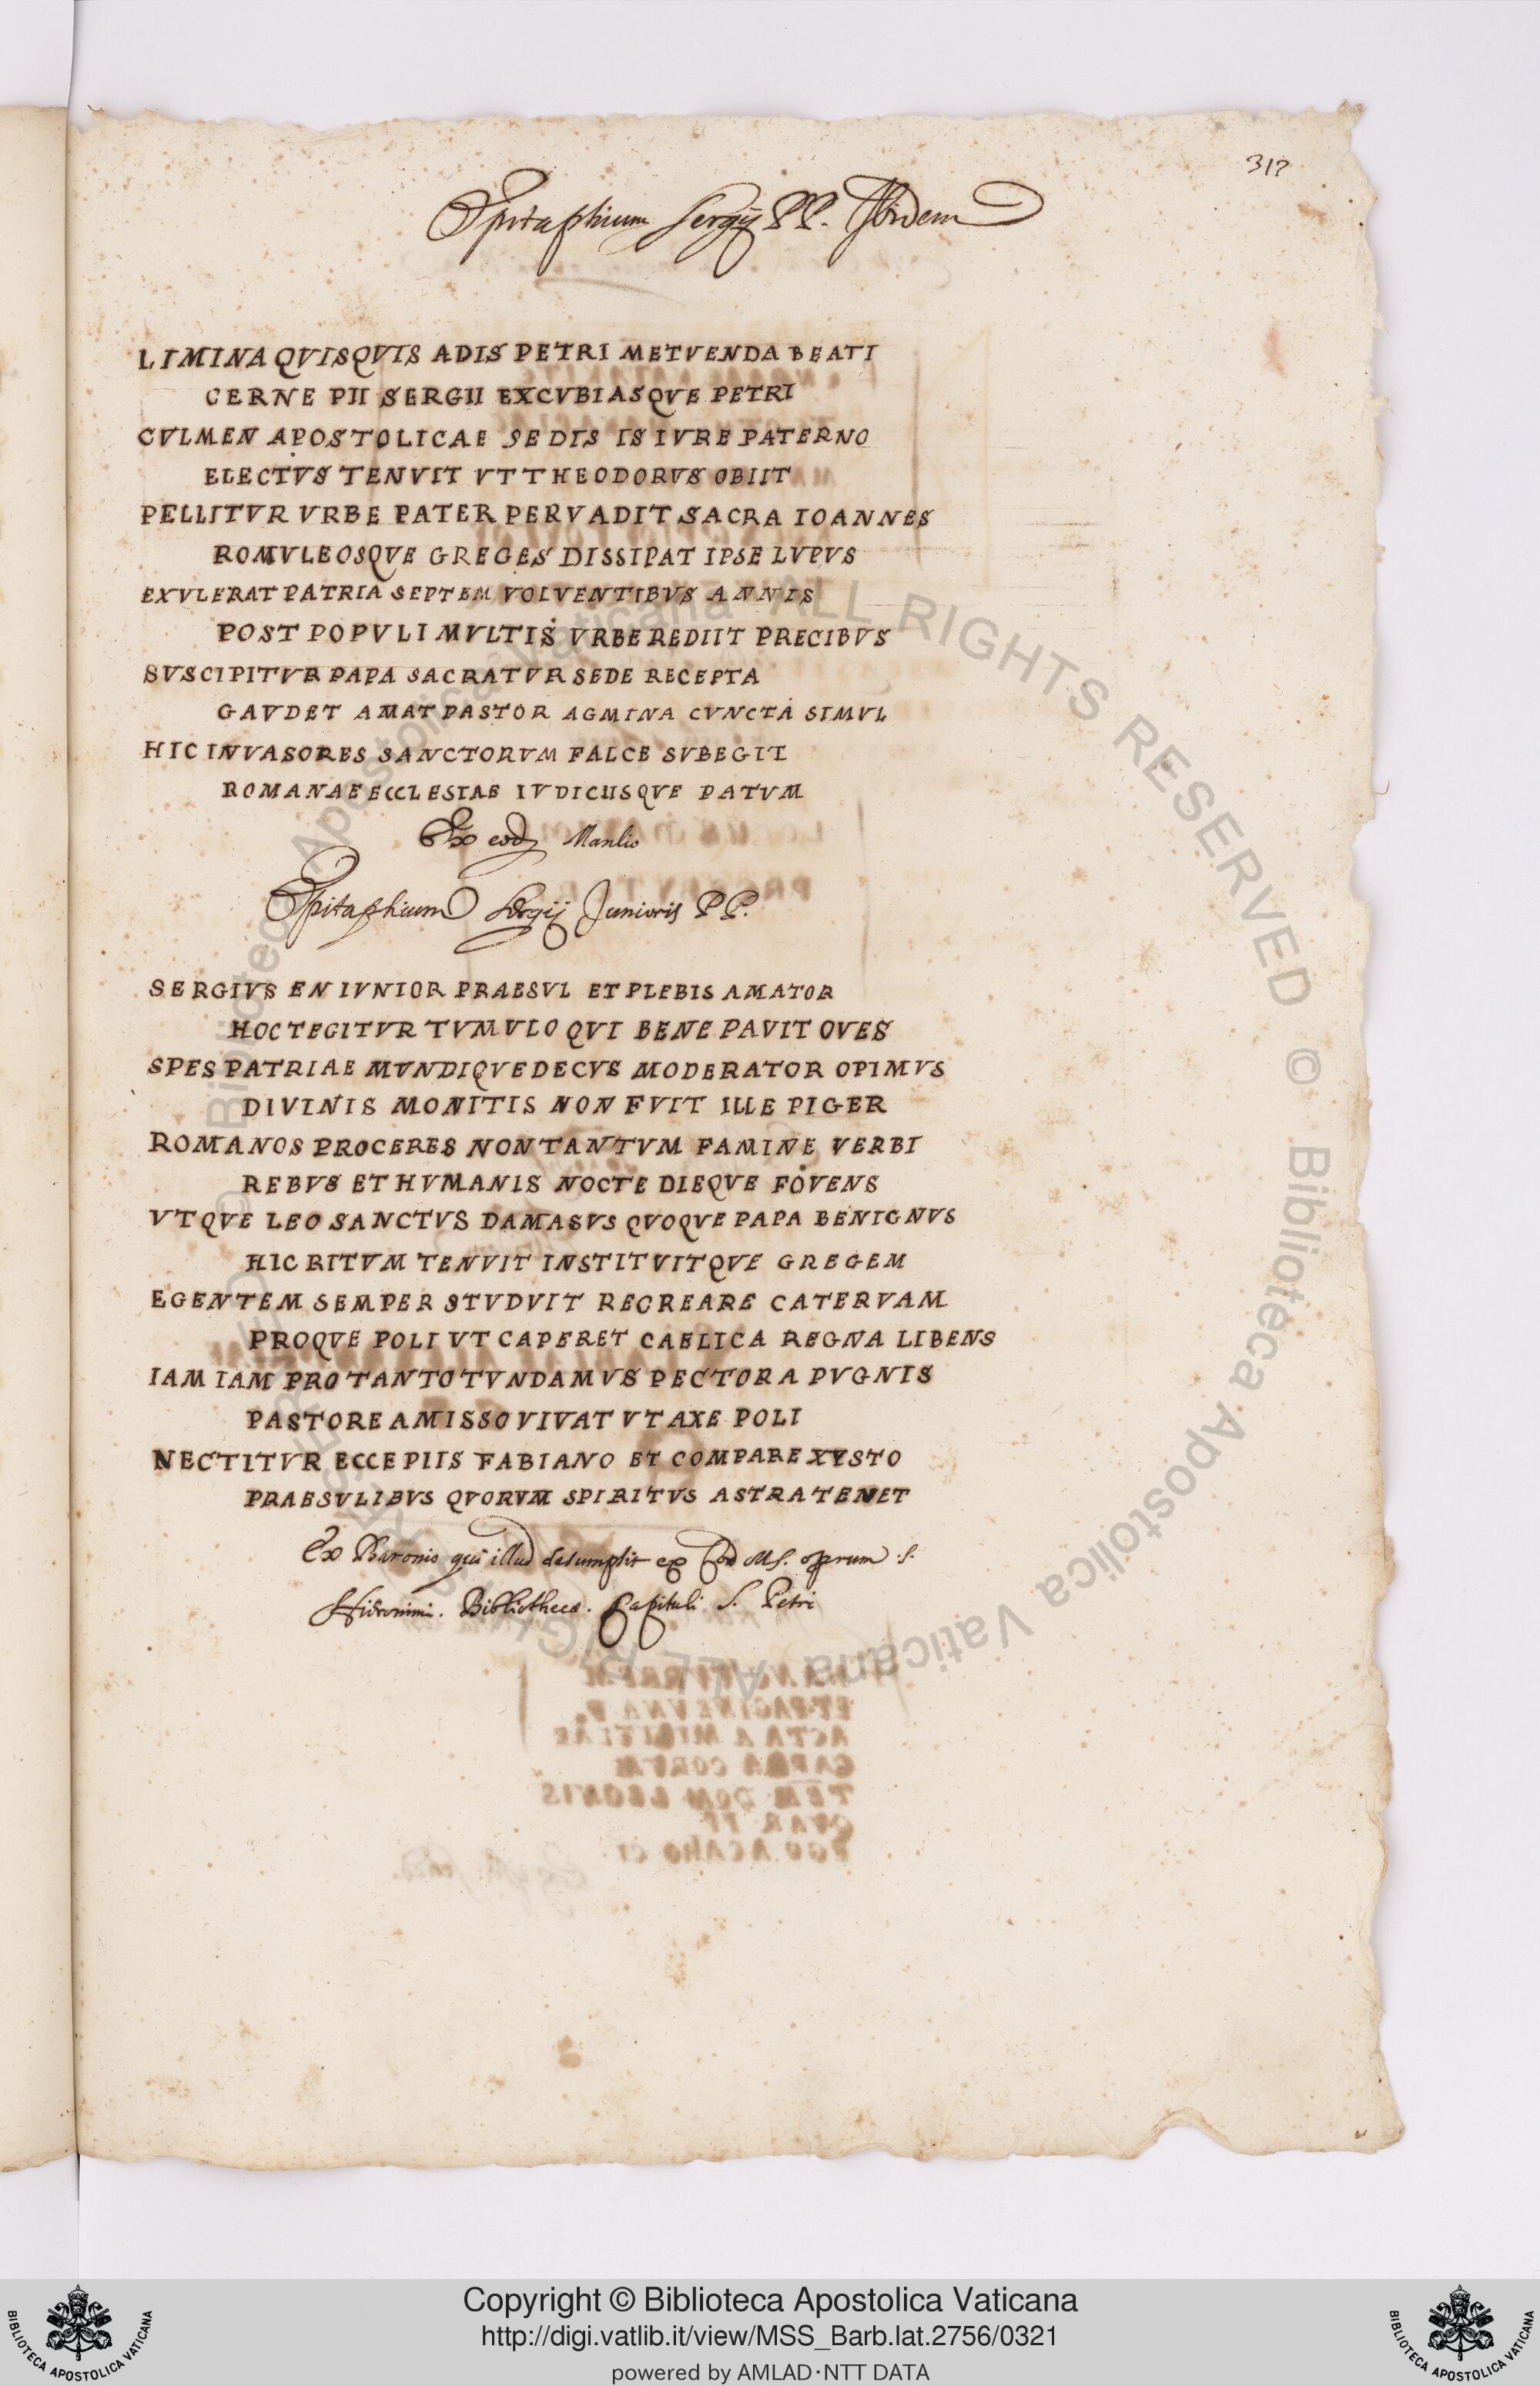 317
Epitaphium Sergij PP. Ibidem
LIMINA QVISQVIS ADIS PETRI METVENDA BEATI
CERNE PII SERGII EXCVBIASQVE PETRI
CVLMEN APOSTOLICAE SEDIS IS IVRE PATERNO
ELECTVS TENVIT VT THEODORVS OBIIT
PELLITVR VRBE PATER PERVADIT SACRA IOANNES
ROMVLEOSQVE GREGES DISSIPAT IPSE LVPVS
EXVLERAT PATRIA SEPTEM VOLVENTIBVS ANNIS
POST POPVLI MVLTIS VRBE REDIIT PRECIBVS
SVSCIPITVR PAPA SACRATVR SEDE RECEPTA
GAVDET AMAT PASTOR AGMINA CVNCTA SIMVL
HIC INVASORES SANCTORVM FALCE SVBEGIT
ROMANAE ECCLESIAE IVDICIISQVE PATVM
Ex eod Manlio
Epitaphium Sergij Junioris PP.
SERGIVS EN IVNIOR PRAESVL ET PLEBIS AMATOR
HOC TEGITVR TVMVLO QVI BENE PAVIT OVES
SPES PATRIAE MVNDIQVE DECVS MODERATOR OPIMVS
DIVINIS MONITIS NON FVIT ILLE PIGER
ROMANOS PROCERES NON TANTVM FAMINE VERBI
REBVS ET HVMANIS NOCTE DIEQVE FOVENS
VTQVE LEO SANCTVS DAMASVS QVOQVE PAPA BENIGNVS
HIC RITVM TENVIT INSTITVITQVE GREGEM
EGENTEM SEMPER STVDVIT RECREARE CATERVAM
PROQVE POLI VT CAPERET CAELICA REGNA LIBENS
IAM IAM PRO TANTO TVNDAMVS PECTORA PVGNIS
PASTORE AMISSO VIVAT VT AXE POLI
NECTITVR ECCE PIIS FABIANO ET COMPARE XYSTO
PRAESVLIBVS QVORVM SPIRITVS ASTRA TENET
Ex Baronio qui illud desumpsit ex Cod MS. operum S.
Hieronimi. Bibliothecae. Capituli S. Petri
Copyright © Biblioteca Apostolica Vaticana
http://digi.vatlib.it/view/MSS_Barb.lat.2756/0321
powered by AMLAD·NTT DATA